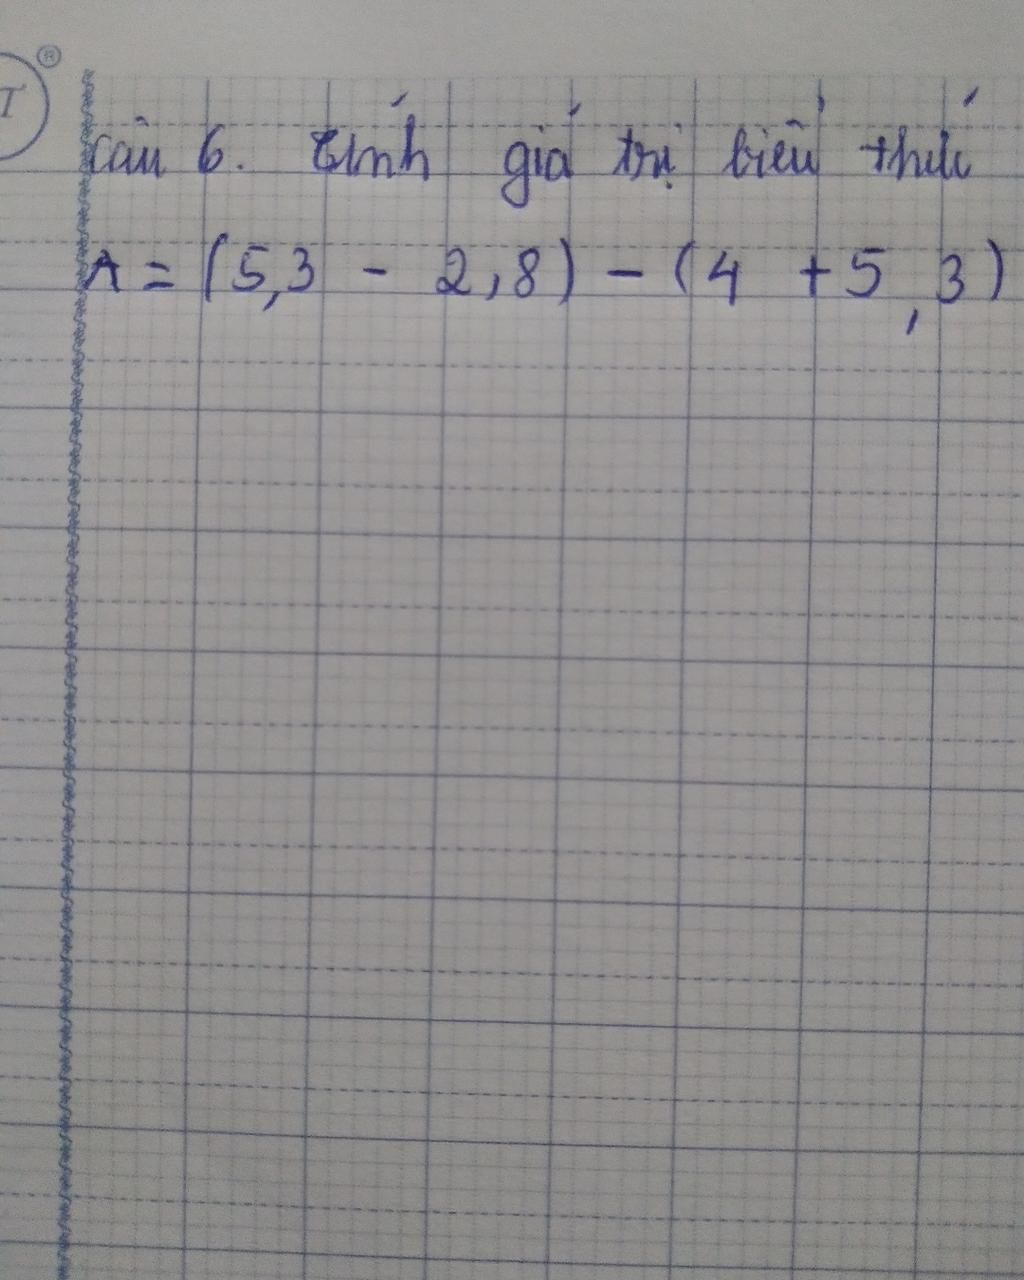 Câu 6. Tính giá trị biểu thức
A = (5,3 - 2,8) - (4 + 5,3)